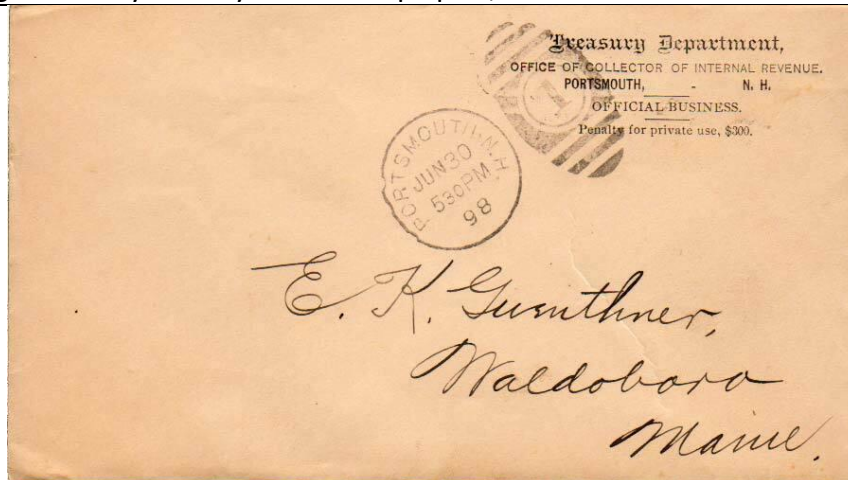 Treasury Department,
OFFICE OF COLLECTOR OF INTERNAL REVENUE.
PORTSMOUTH, - N. H.
OFFICIAL BUSINESS.
Penalty for private use, $300.
1
PORTSMOUTH N.H.
JUN 30
530PM
98
E. K. Guenthner,
Waldoboro
Maine.